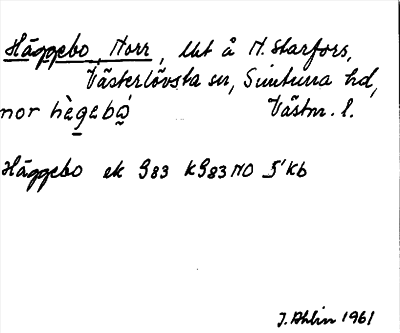 Häggebo, Norr, lht å N. Starfors,
Västerlövsta sn, Simtuna hd,
nor hègebó Västm. l.
Häggebo ek 983 k983 NO 5'kb
J. Ahlin 1961